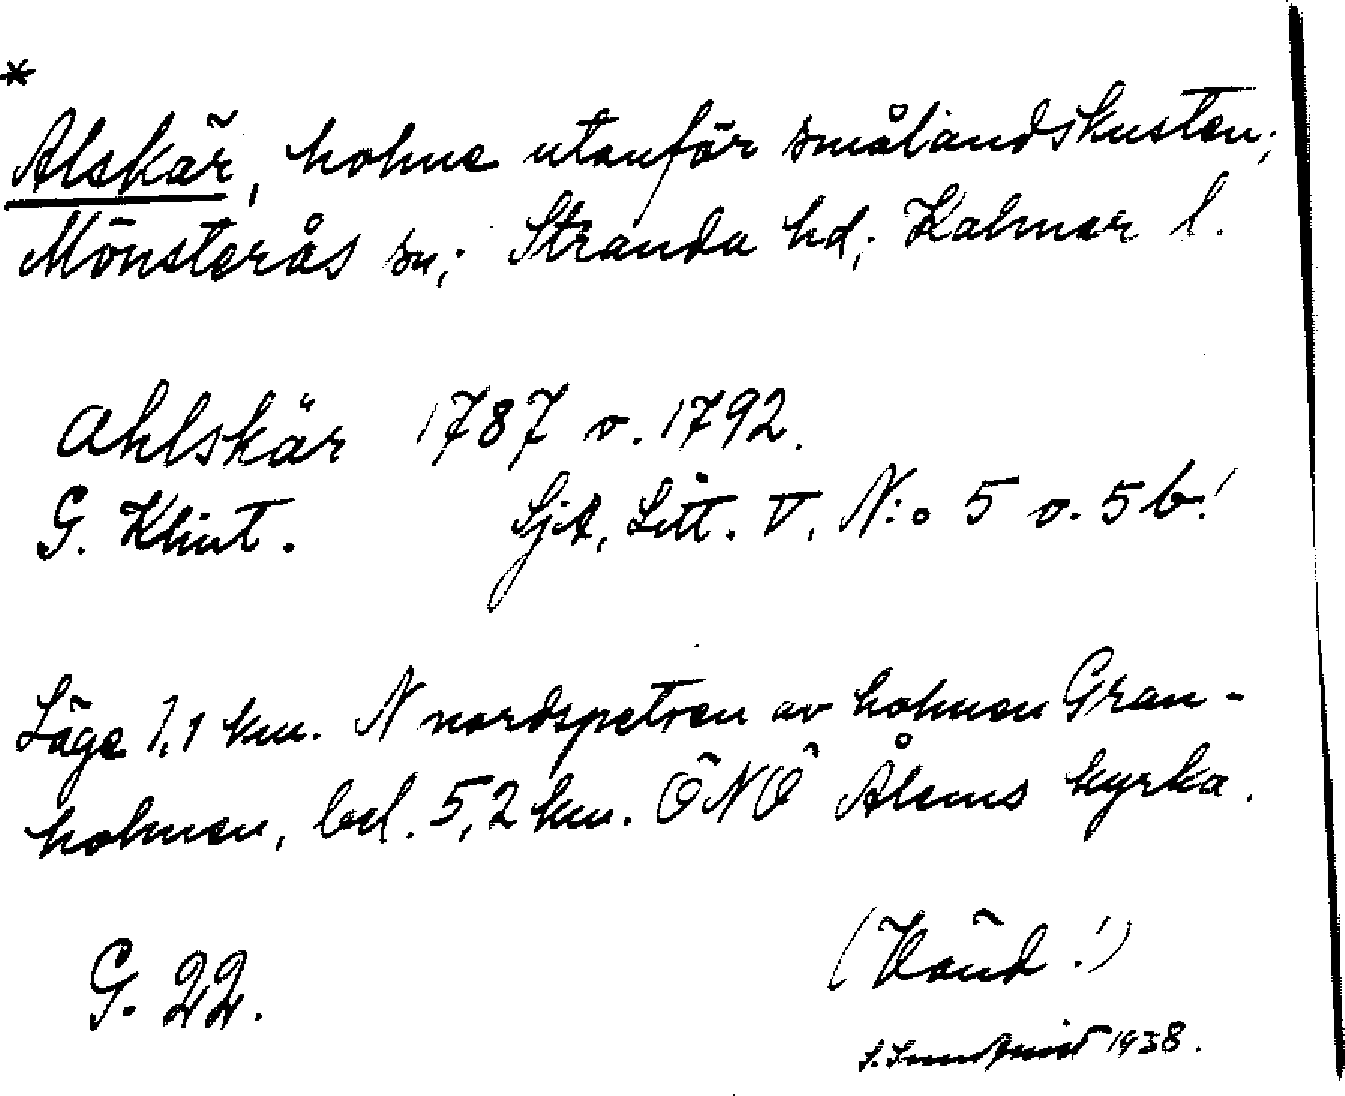 *
Alskär, holme utanför smålandskusten;
Mönsterås sn; Stranda hd; Kalmar l.
Ahlskär 1787 o. 1792.
G. Klint. SjA, Litt. V, N:o 5 o. 5 b!
Läge 1,1 km. N nordspetsen av holmen Gran-
holmen, bel. 5,2 km. ÖNÖ Ålems kyrka.
G. 22. (Känd!)
1938.